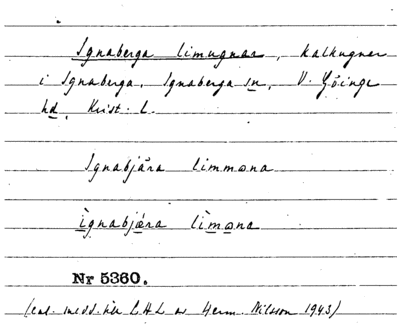 Ignaberga limugnar, kalkugner
i Ignaberga, Ignaberga sn, V. Göinge
hd, Krist. l.
Ignabjära limmona
ìgnabjæra lìmona
Nr 5360.
(enl. medd. här L.H.L av Herm. Nilsson 1943)